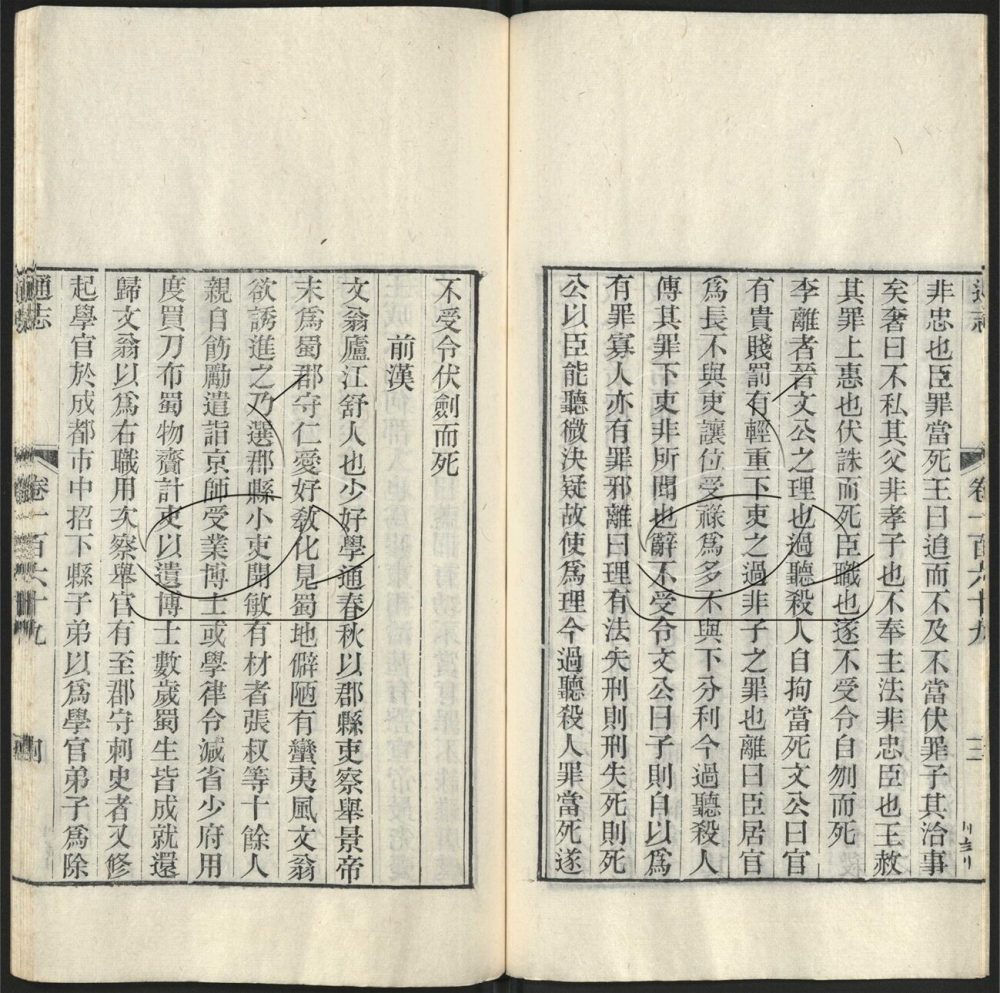 非忠也臣罪當死王曰追而不及不當伏罪子其治事
矣奢曰不私其父非孝子也不奉主法非忠臣也王赦
其罪上惠也伏誅而死臣職也遂不受令自刎而死
李離者晉文公之理也過聽殺人自拘當死文公曰官
有貴賤罰有輕重下吏之過非子之罪也離曰臣居官
爲長不與吏讓位受祿爲多不與下分利今過聽殺人
傳其罪下吏非所聞也辭不受令文公曰子則自以爲
有罪寡人亦有罪邪離曰理有法失刑則刑失死則死
公以臣能聽微決疑故使爲理今過聽殺人罪當死遂
不受令伏劍而死
前漢
文翁廬江舒人也少好學通春秋以郡縣吏察舉景帝
末爲蜀郡守仁愛好敎化見蜀地僻陋有蠻夷風文翁
欲誘進之乃選郡縣小吏開敏有材者張叔等十餘人
親自飭勵遣詣京師受業博士或學律令減省少府用
度買刀布蜀物齎計吏以遺博士數歲蜀生皆成就還
歸文翁以爲右職用次察舉官有至郡守刺史者又修
起學官於成都市中招下縣子弟以爲學官弟子爲除
通志
卷一百六十九